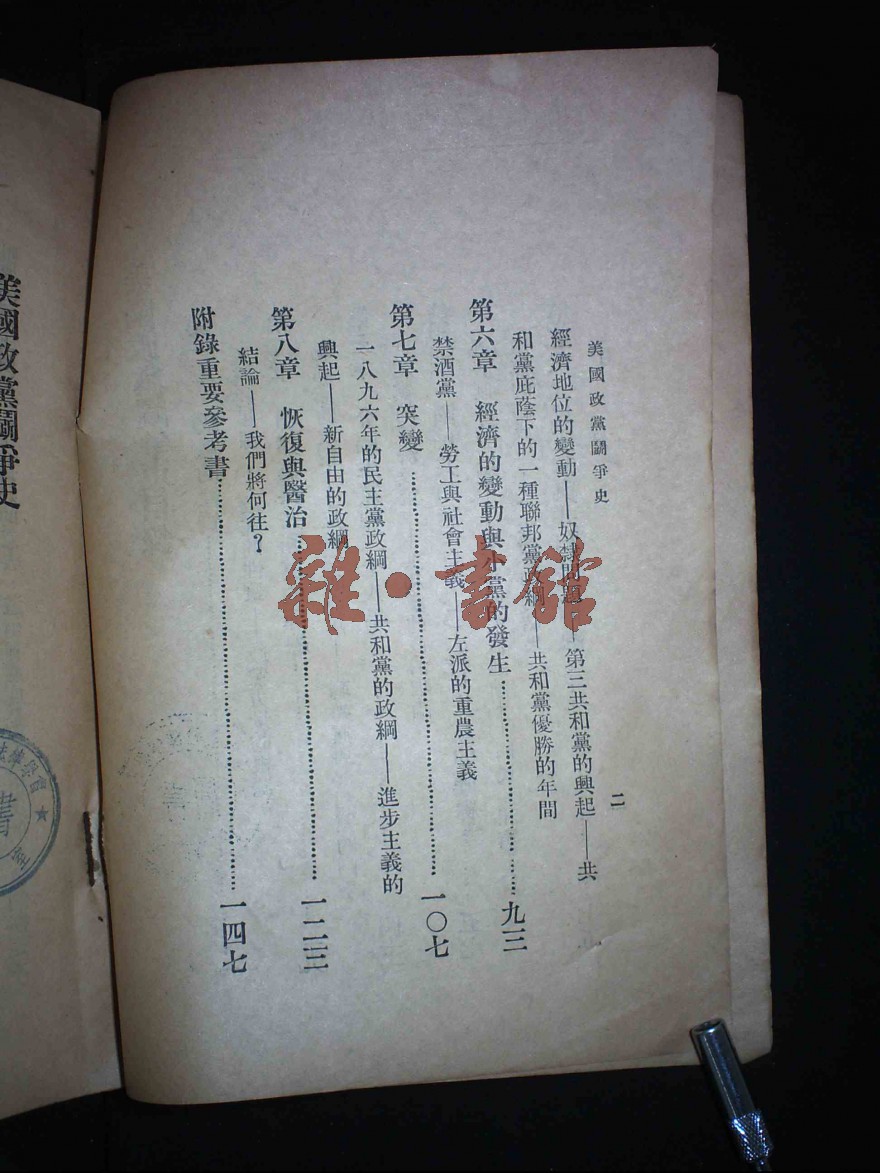 美國政黨鬭爭史
二
經濟地位的變動——奴隸問題——第三共和黨的興起——共
和黨庇蔭下的一種聯邦黨政綱——共和黨優勝的年間
第六章 經濟的變動與小黨的發生 九三
禁酒黨——勞工與社會主義——左派的重農主義
第七章 突變 一〇七
一八九六年的民主黨政綱——共和黨的政綱——進步主義的
興起——新自由的政綱
第八章 恢復與醫治 一二三
結論——我們將何往？
附錄重要參考書 一四七
美國政黨鬭爭史
雜·書館